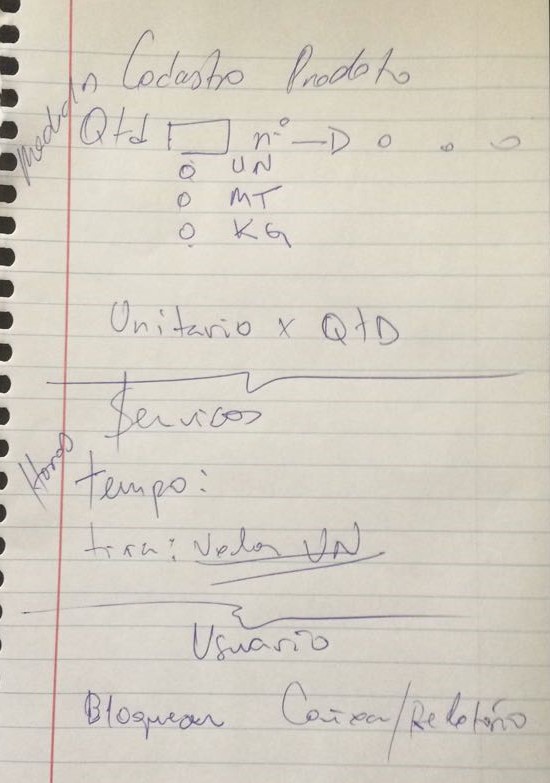 Cadastro Produto
Medida
Qtd nº
UN
MT
KG
Unitario x QtD
Servicos
Horas
tempo:
tirar: Valor UN
Usuario
Bloquear Caixa/Relatório